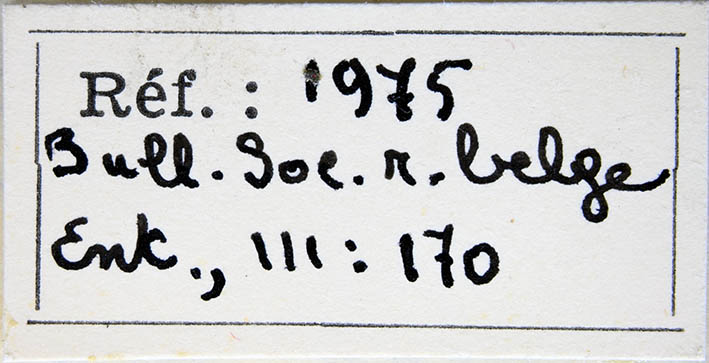 Réf. : 1975
Bull. Soc. r. belge
Ent., III : 170